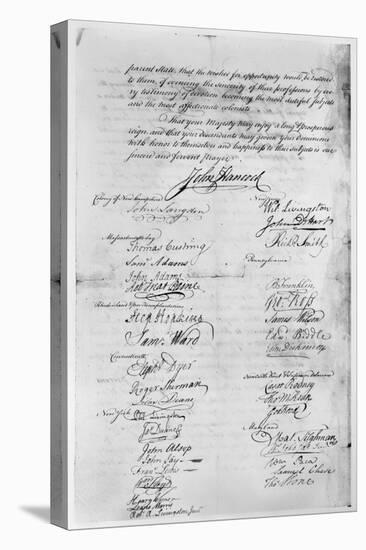 parent State, that the wished for opportunity would be restored
to them, of evincing the sincerity of their professions by eve-
ry testimony of devotion becoming the most dutiful subjects
and the most affectionate colonists
That your Majesty may enjoy a long & prosperous
reign, and that your descendants may govern your Dominions
with honor to themselves and happiness to their subjects is our
sincere and fervent prayer.
John Hancock
Colony of New hampshire
John Langdon
Massachusetts bay
Thomas Cushing
Saml Adams
John Adams
Robt Treat Paine
Rhode Island
Step Hopkins
Sam: Ward
Connecticut
Elipht Dyer
Roger Sherman
Silas Deane
New York
Phil Livingston
Jas Duane
John Alsop
John Jay
Frans Lewis
Wm Floyd
Henry Wisner
Lewis Morris
Robt R Livingston Junr
New
Wil: Livingston
John D Hart
Richd Smith
Pennsylvania
B Franklin
Geo: Ross
James Wilson
Edwd Biddle
John Dickinson
Cæsar Rodney
Tho M:Kean
Geo Read
Maryland
Mat. Tilghman
Wm Paca
Samuel Chase
Thos Stone